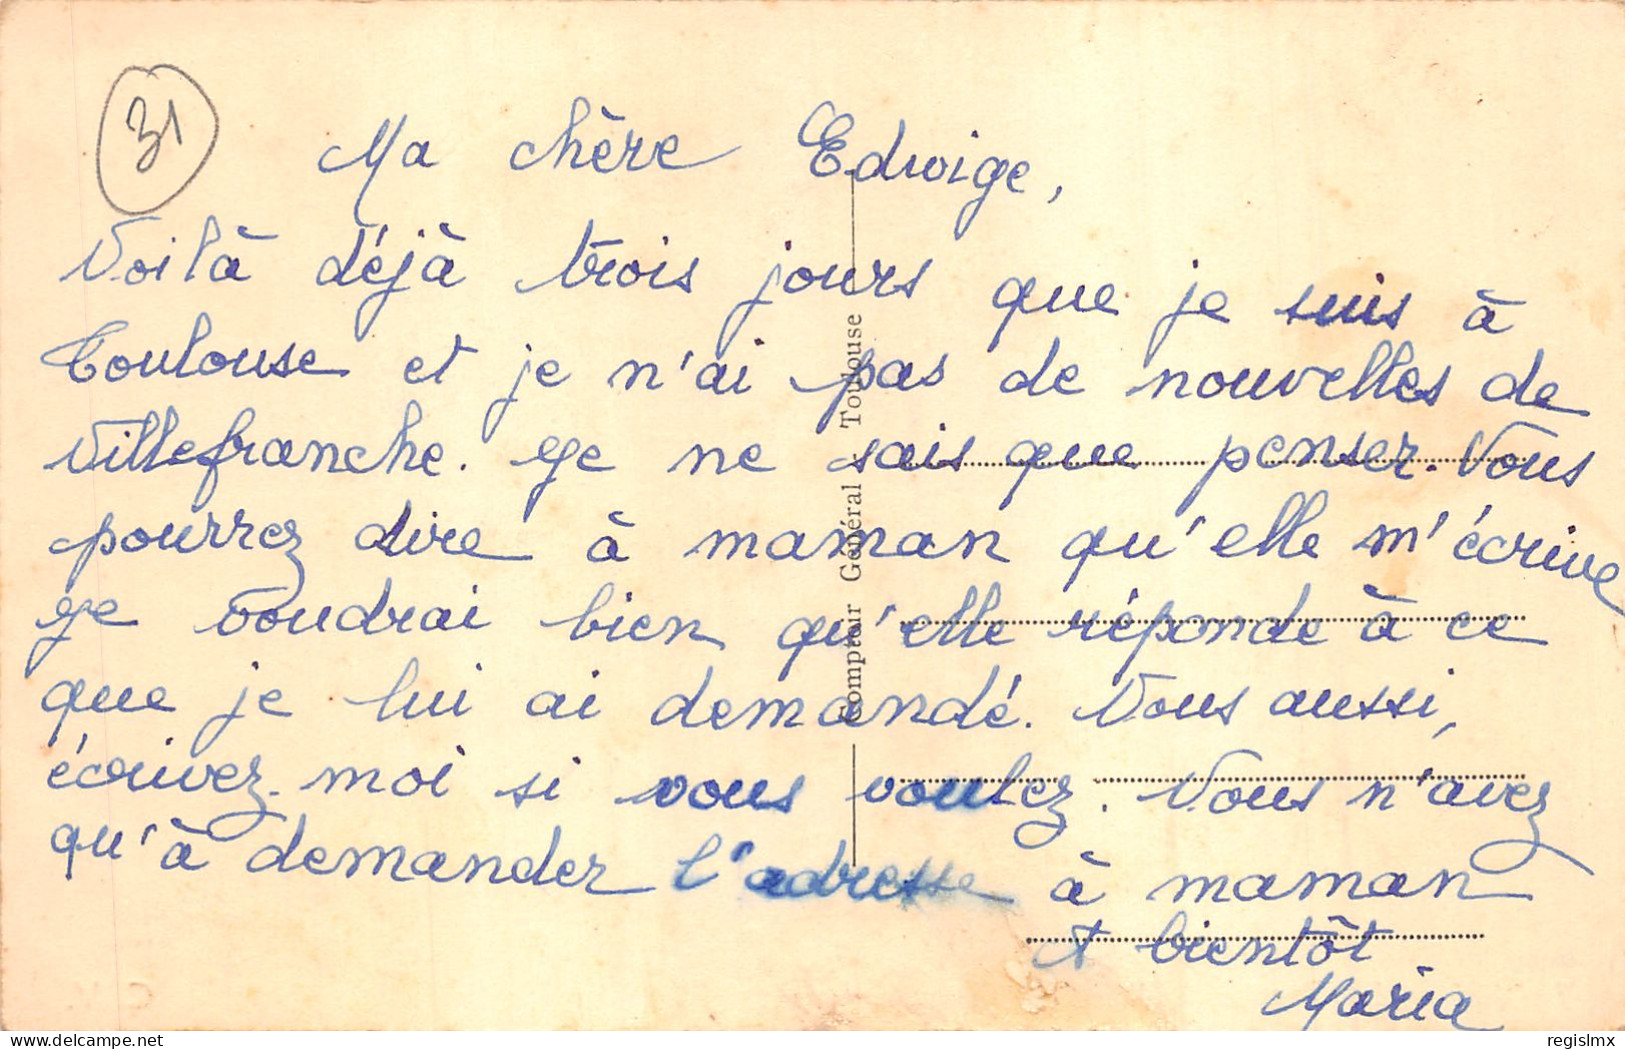 31
Ma chère Edwige,
Voilà déjà trois jours que je suis à
Toulouse et je n'ai pas de nouvelles de
Villefranche. Je ne sais que penser. Vous
pourrez dire à maman qu'elle m'écrive
Je voudrai bien qu'elle réponde à ce
que je lui ai demandé. Vous aussi,
écrivez-moi si vous voulez. Vous n'avez
qu'à demander l'adresse à maman
A bientôt
Maria
Comptoir Général Toulouse
delcampe.net
regislmx